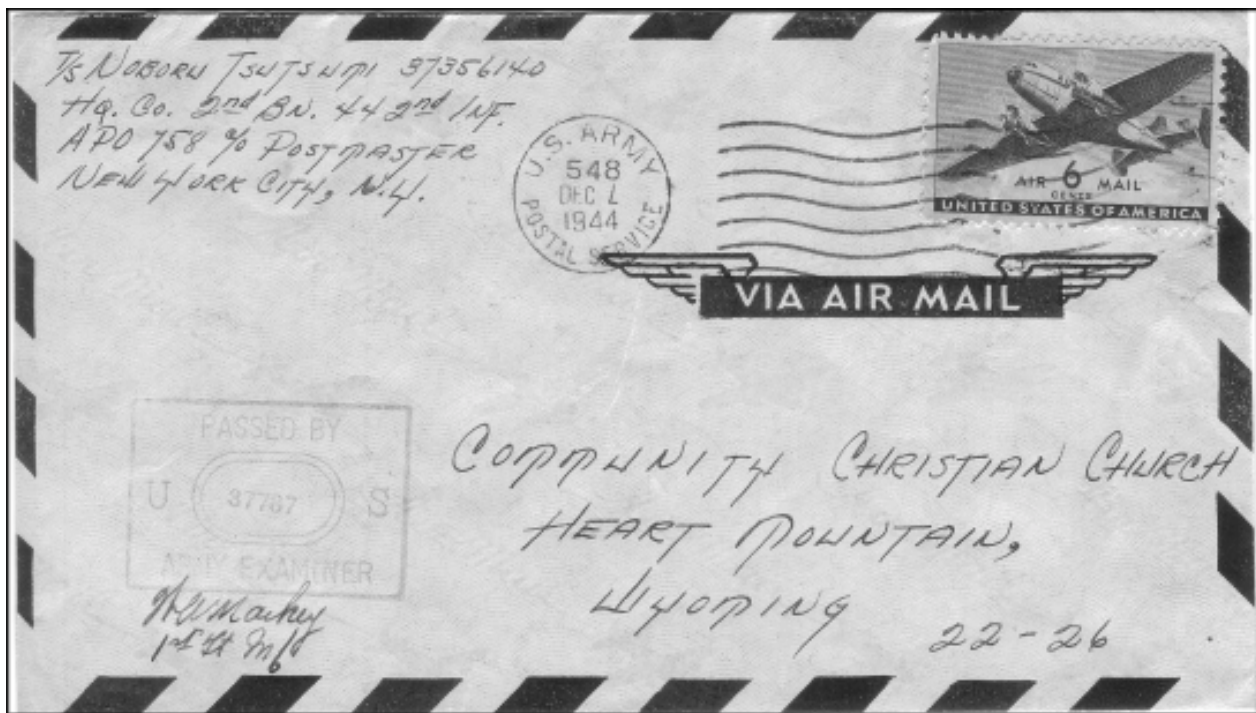 T/5 NOBORU TSUTSUMI 37356140
HQ. CO. 2nd BN. 442nd INF.
APO 758 c/o POSTMASTER
NEW YORK CITY, N.Y.
U.S. ARMY
548
DEC
1944
POSTAL SERVICE
AIR 6 MAIL
CENTS
UNITED STATES OF AMERICA
VIA AIR MAIL
PASSED BY
U 37787 S
ARMY EXAMINER
1st Lt
COMMUNITY CHRISTIAN CHURCH
HEART MOUNTAIN,
WYOMING
22-26